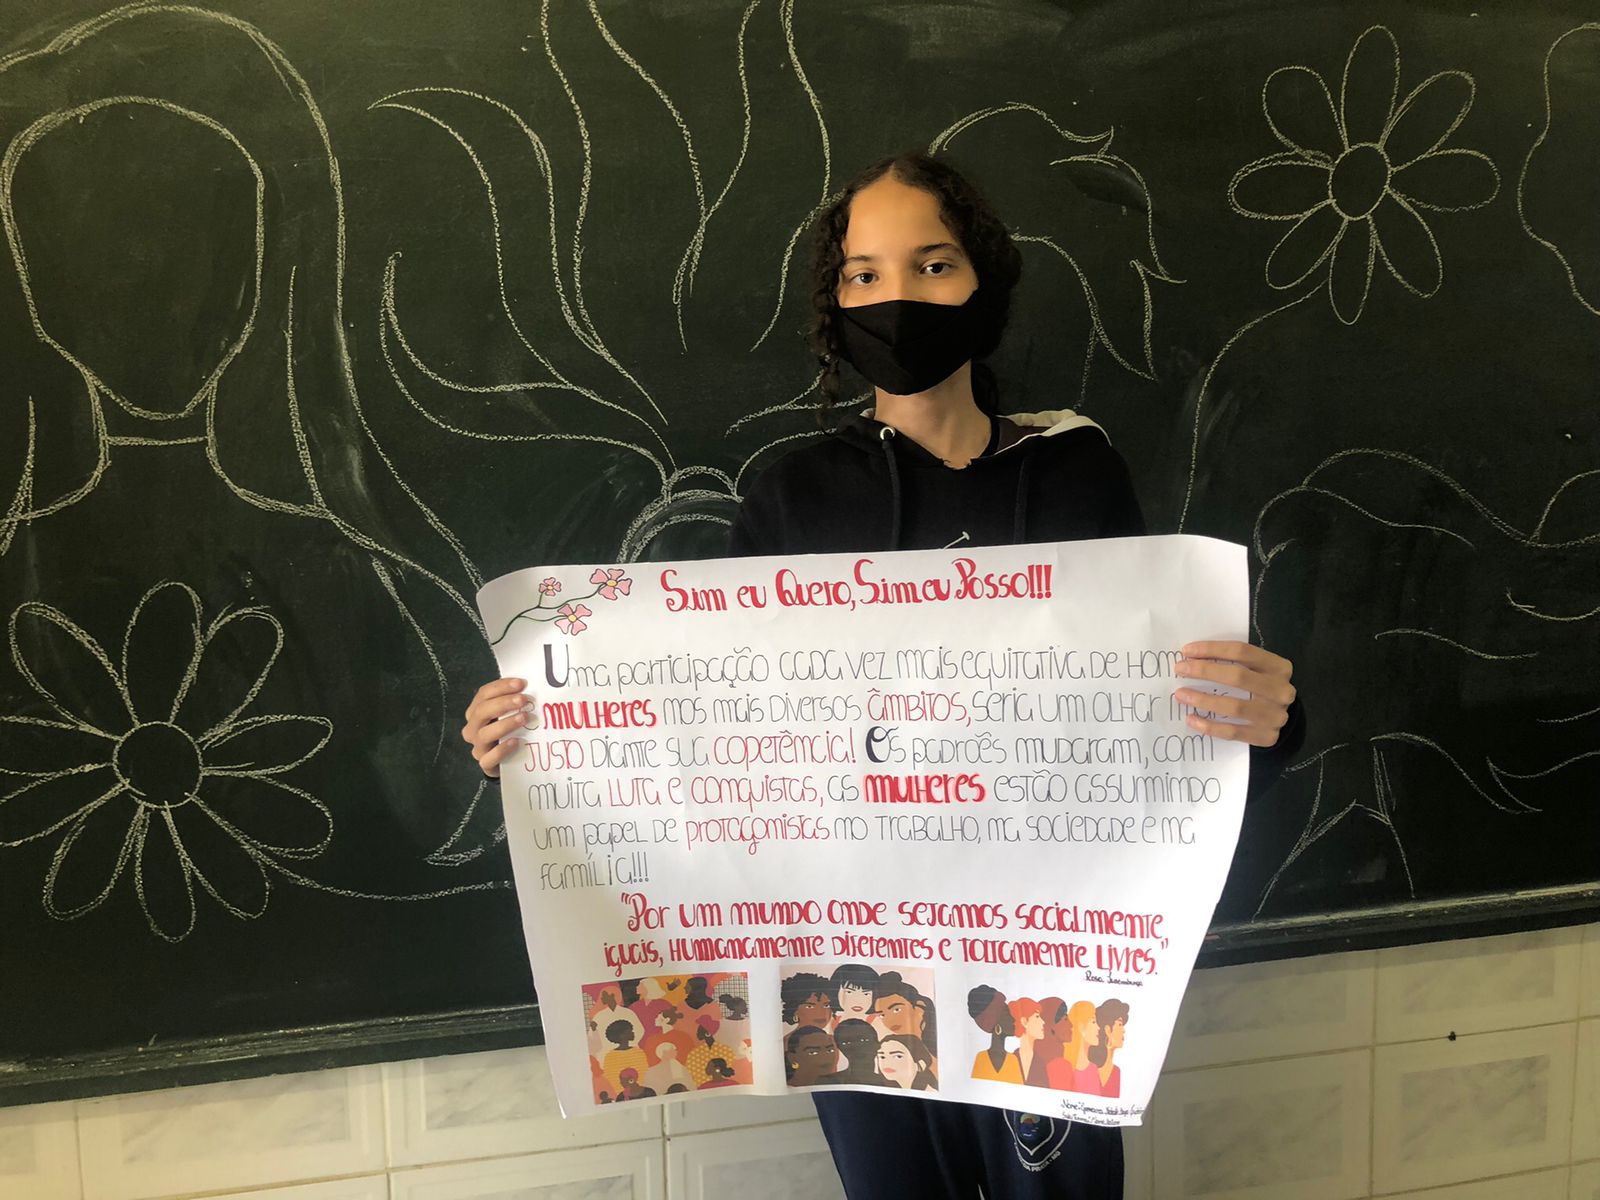 Sim eu Quero, Sim eu Posso!!!
Uma participação cada vez mais equitativa de hom
e mulheres nos mais diversos âmbitos, seria um olhar mais
justo diante sua copetência! E os padrões mudaram, com
muita luta e conquistas, as mulheres estão assumindo
um papel de protagonistas no trabalho, na sociedade e na
família!!!
"Por um mundo onde sejamos socialmente
iguais, humanamente diferentes e totamente livres."
Rosa Luxemburgo
Nome: